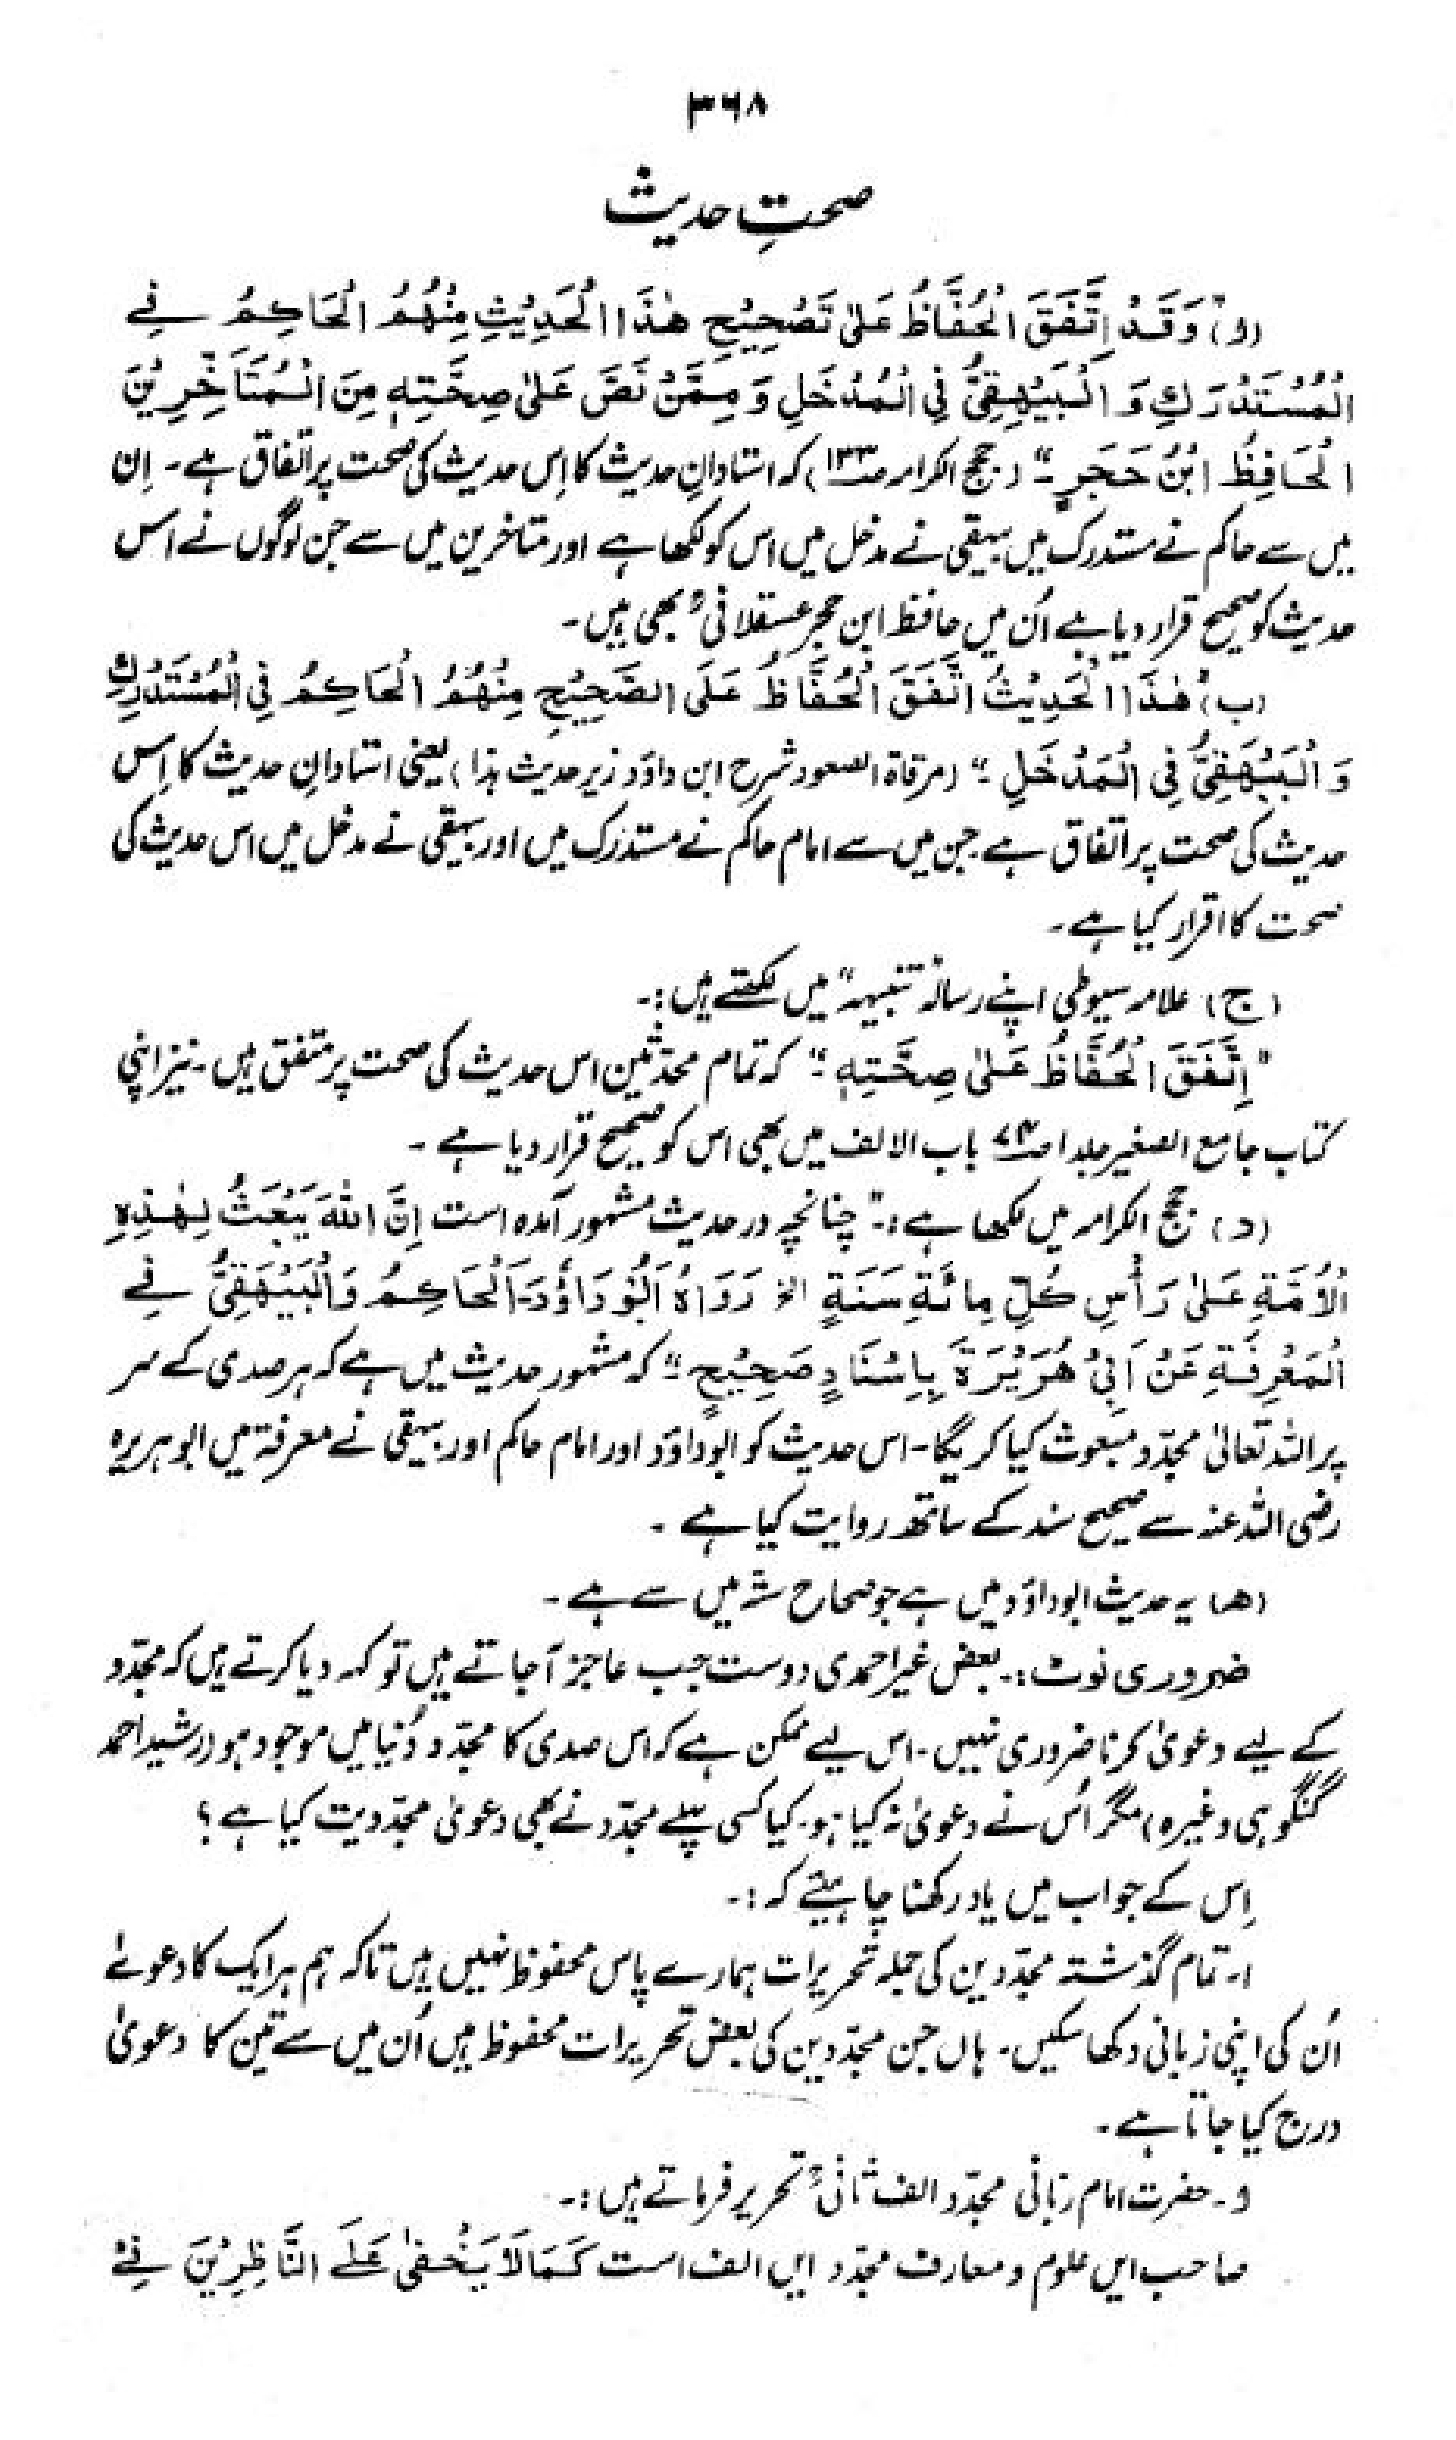 ۳۶۸
صحتِ حدیث
(ا) "وَقَدْ اِتَّفَقَ الْحُفَّاظُ عَلٰی تَصْحِیْحِ ھٰذَا الْحَدِیْثِ مِنْھُمُ الْحَاکِمُ فِے
الْمُسْتَدْرَکِ وَ الْبَیْہِقِیُّ فِی الْمُدْخَلِ وَ مِمَّنْ نَصَّ عَلٰی صِحَّتِہٖ مِنَ الْمُتَاَخِّرِیْنَ
الْحَافِظُ ابْنُ حَجَرٍ۔" (حجج الکرامہ ص۱۳۳) کہ استادانِ حدیث کا اِس حدیث کی صحت پر اتفاق ہے۔ اِن
میں سے حاکم نے مستدرک میں بیہقی نے مدخل میں اس کو لکھا ہے اور متاخرین میں سے جن لوگوں نے اس
حدیث کو صحیح قرار دیا ہے اُن میں حافظ ابن حجر عسقلانیؒ بھی ہیں۔
(ب) "ھٰذَا الْحَدِیْثُ اتَّفَقَ الْحُفَّاظُ عَلَی الصَّحِیْحِ مِنْھُمُ الْحَاکِمُ فِی الْمُسْتَدْرَکِ
وَ الْبَیْہَقِیُّ فِی الْمَدْخَلِ۔" (مرقاۃ الصعود شرح ابن داؤد زیر حدیث ہذا) یعنی استادانِ حدیث کا اِس
حدیث کی صحت پر اتفاق ہے جن میں سے امام حاکم نے مستدرک میں اور بیہقی نے مدخل میں اس حدیث کی
صحت کا اقرار کیا ہے۔
(ج) علامہ سیوطی اپنے رسالہ "تنبیہہ" میں لکھتے ہیں:۔
"اِتَّفَقَ الْحُفَّاظُ عَلٰی صِحَّتِہٖ۔" کہ تمام محدّثین اس حدیث کی صحت پر متفق ہیں۔ نیز اپنی
کتاب جامع الصغیر جلد ا ص۷۴ باب الالف میں بھی اس کو صحیح قرار دیا ہے۔
(د) حجج الکرامہ میں لکھا ہے:۔ "چنانچہ در حدیث مشہور آمدہ است اِنَّ اللّٰہَ یَبْعَثُ لِھٰذِہِ
الْاُمَّۃِ عَلٰی رَأْسِ کُلِّ مِائَۃِ سَنَۃٍ الخ رَوَاہُ اَبُوْ دَاؤُدَ۔ اَلْحَاکِمُ وَالْبَیْہَقِیُّ فِے
الْمَعْرِفَۃِ عَنْ اَبِیْ ھُرَیْرَۃَ بِاِسْنَادٍ صَحِیْحٍ۔" کہ مشہور حدیث میں ہے کہ ہر صدی کے سر
پر اللہ تعالیٰ مجدّد مبعوث کیا کریگا۔ اس حدیث کو ابوداؤد اور امام حاکم اور بیہقی نے معرفۃ میں ابو ہریرہ
رضی اللہ عنہ سے صحیح سند کے ساتھ روایت کیا ہے۔
(ھ) یہ حدیث ابوداؤد میں ہے جو صحاح ستہ میں سے ہے۔
ضروری نوٹ:۔ بعض غیر احمدی دوست جب عاجز آ جاتے ہیں تو کہہ دیا کرتے ہیں کہ مجدّد
کے لیے دعویٰ کرنا ضروری نہیں۔ اس لیے ممکن ہے کہ اس صدی کا مجدّد دُنیا میں موجود ہو (رشید احمد
گنگوہی وغیرہ) مگر اُس نے دعویٰ نہ کیا ہو۔ کیا کسی پہلے مجدّد نے بھی دعویٰ مجدّدیت کیا ہے؟
اِس کے جواب میں یاد رکھنا چاہیئے کہ:۔
ا۔ تمام گذشتہ مجدّدین کی جملہ تحریرات ہمارے پاس محفوظ نہیں ہیں تاکہ ہم ہر ایک کا دعویٰ
اُن کی اپنی زبانی دکھا سکیں۔ ہاں جن مجدّدین کی بعض تحریرات محفوظ ہیں اُن میں سے تین کا دعویٰ
درج کیا جاتا ہے۔
و۔ حضرت امام ربّانی مجدّد الف ثانیؒ تحریر فرماتے ہیں:۔
صاحب ایں علوم و معارف مجدّد ایں الف است کَمَا لَا یَخْفیٰ عَلَے النَّاظِرِیْنَ فِیْ